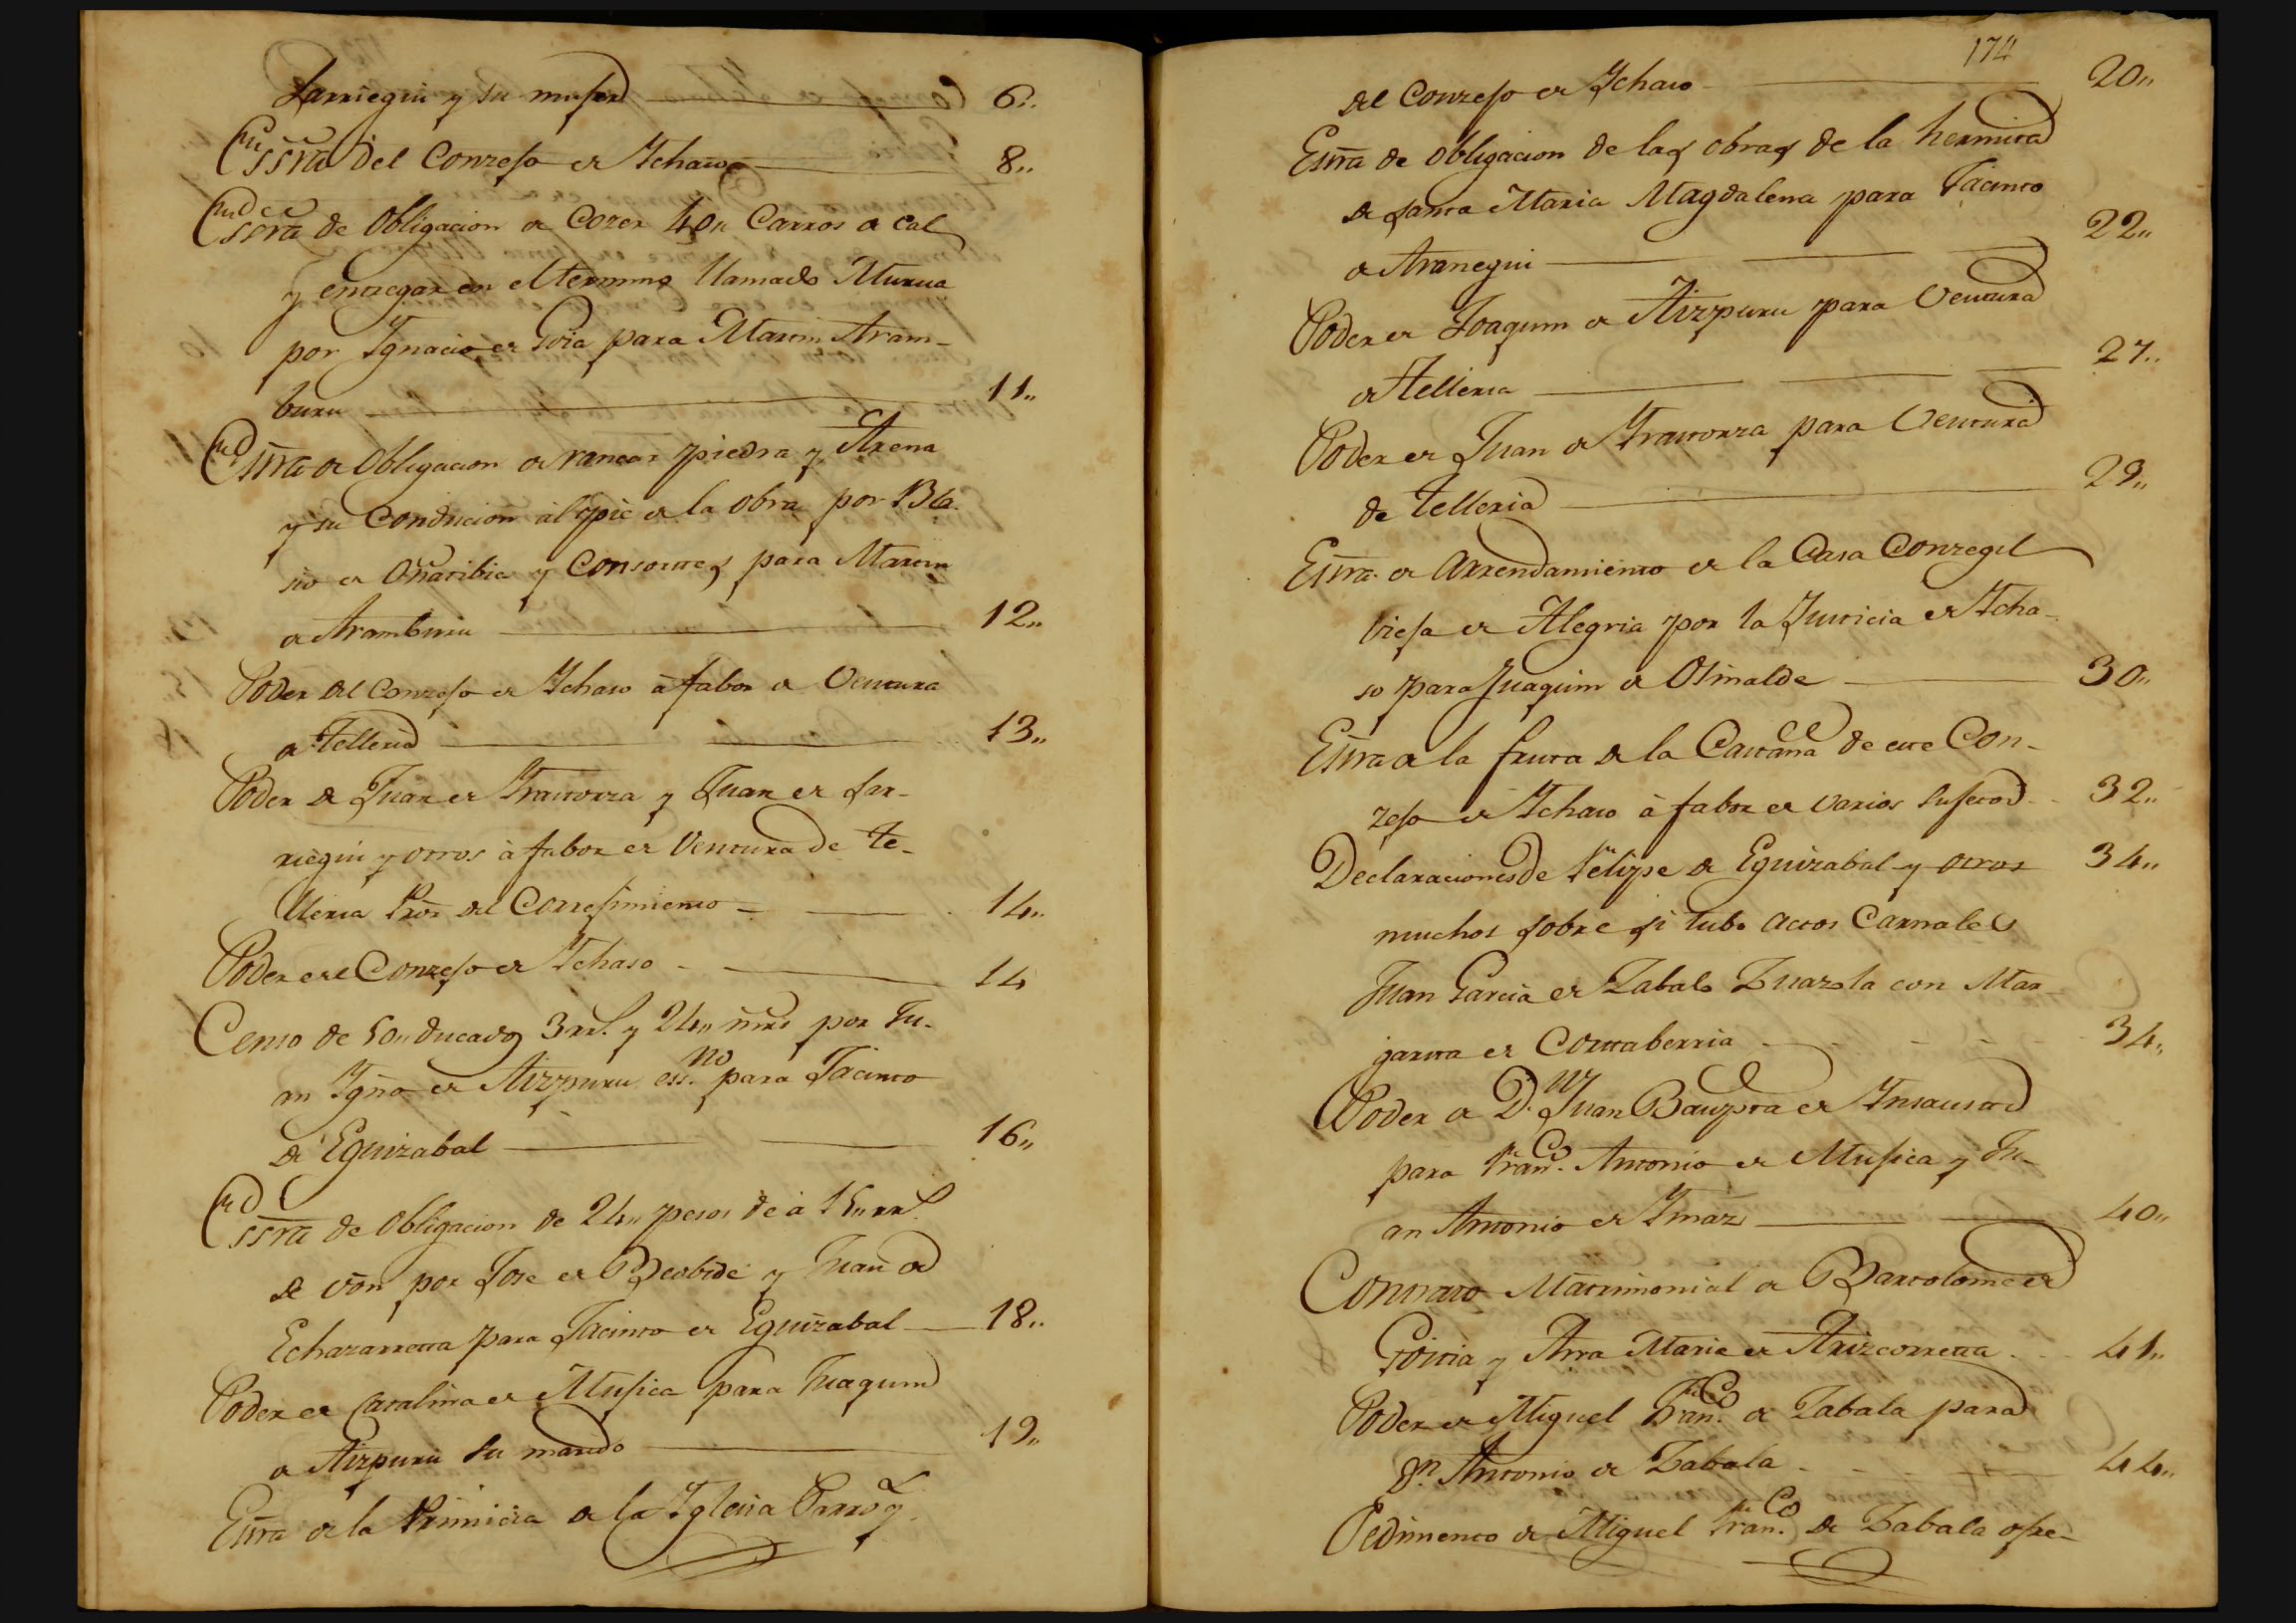 Larriegui y su muger 6,,
Essra del Conzejo de Ychaso 8,,
Essra de Obligacion de Cozer 40,, Carros de Cal
y entregar en el termino llamado Murua
por Ygnacio de Goia para Martin Aram-
buru 11,,
Essra de Obligacion de rancar piedra y Arena
y su Conducion al pie de la obra por Bla-
sio de Oñatibia y Consortes para Martin
de Aramburu 12,,
Poder del Conzejo de Ychaso à fabor de Ventura
de Telleria 13,,
Poder de Juan de Yrastorza y Juan de Lar-
riegui y otros à fabor de Ventura de te-
lleria Pror. del Correjimiento 14,,
Poder del Conzejo de Ychaso 14
Censo de 50,, ducados 3 rrs. y 24,, mrs por Ju-
an Ygno de Aizpuru essno para Jacinto
de Eguizabal 16,,
Essra de Obligacion de 24,, pesos de à 15,, rrs.
de von por Jose de Beobide y Juan de
Echazarreta para Jacinto de Eguizabal 18,,
Poder de Catalina de Mujica para Juaquin
de Aizpuru su marido 19,,
Essra de la Primicia de la Yglesia Parroql.
174
del Conzejo de Ychaso 20,,
Essra de Obligacion de las obras de la hermita
de santa Maria Magdalena para Jacinto
de Aranegui 22,,
Poder de Joaquin de Aizpuru para Ventura
de Telleria 27,,
Poder de Juan de Yrastorza para Ventura
de telleria 29,,
Essra. de Arrendamiento de la Casa Conzegil
bieja de Alegria por la Justicia de Ycha-
so para Juaquin de Osinalde 30,,
Essra de la fruta de la Castaña de este Con-
zejo de Ychaso à fabor de varios sujetos 32,,
Declaraciones de Felipe de Eguizabal y otros 34,,
muchos sobre si tubo actos Carnales
Juan Garcia de Zabalo Zuazola con Mar
garita de Cortaberria 34,,
Poder de Dn. Juan Bauptta de Ynsausti
para Franco. Antonio de Mujica y Ju-
an Antonio de Ymaz 40,,
Contrato Matrimonial de Bartolome de
Goitia y Ana Maria de Arizcorreta 41,,
Poder de Miguel Franco. de Zabala para
Dn. Antonio de Zabala 44,,
Pedimento de Miguel Franco. de Zabala ofre-